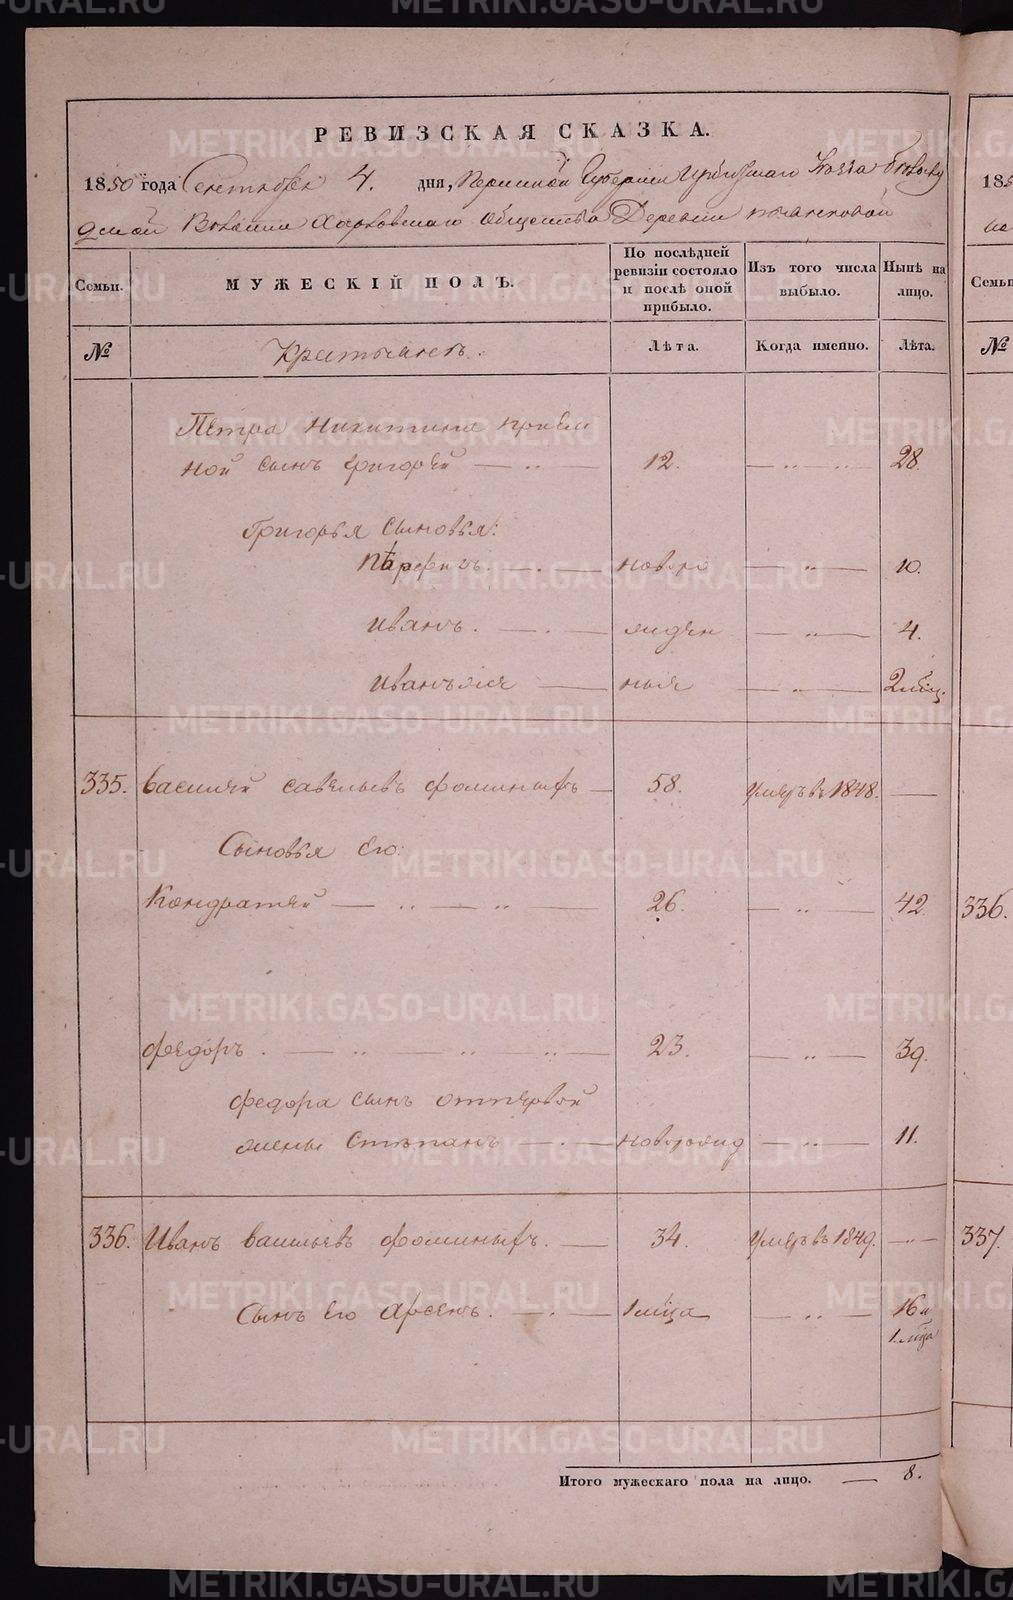 РЕВИЗСКАЯ СКАЗКА.
1850 года Сентября 4. дня, Пермской Губернии Уезда
Волости Харловскаго общества Деревни
Семьи.
МУЖЕСКІЙ ПОЛЪ.
По послѣдней ревизіи состояло и послѣ оной прибыло.
Изъ того числа выбыло.
Нынѣ на лицо.
Семьи
№
Крестьянъ.
Лѣта.
Когда именно.
Лѣта.
№
Петра Никитина прием
ной сынъ Григорей 12. 28.
Григорья сыновья:
Перфилъ. новоро 10.
Иванъ. жден 4.
Иванъ же ныя 2 мѣс.
335. Василей Савельевъ Фоминыхъ 58. Умеръ въ 1848.
Сыновья его:
Кондратей 26. 42. 336.
Федоръ. 23. 39.
Федора сынъ отпервой
жены Степанъ новорожд 11.
336. Иванъ Васильевъ Фоминыхъ. 34. Умеръ въ 1849. 337.
Сынъ его Арсенъ. 1 мѣсца 16 и
1. мѣца
Итого мужескаго пола на лицо. 8.
METRIKI.GASO-URAL.RU